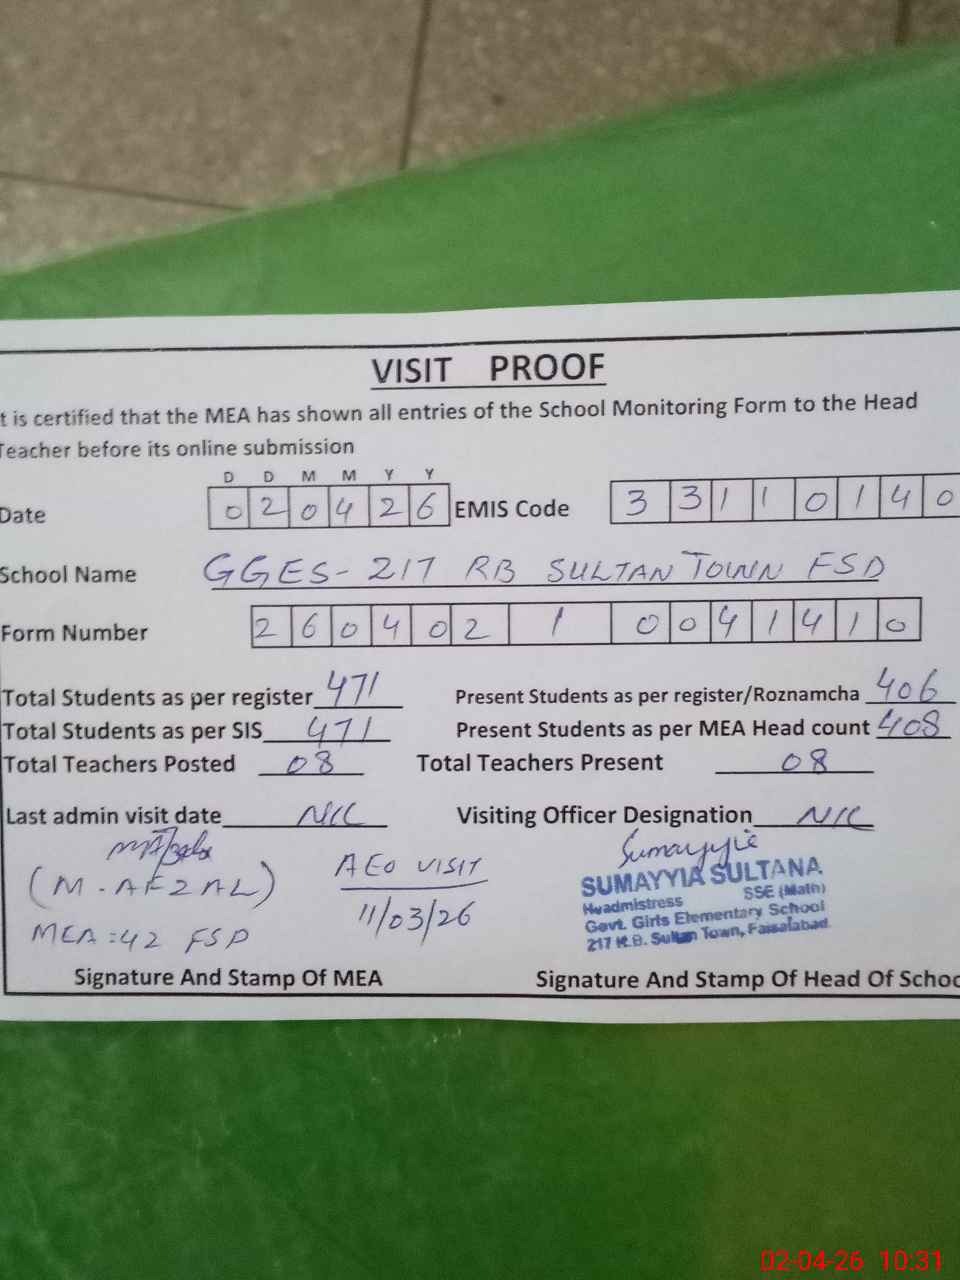 VISIT PROOF
t is certified that the MEA has shown all entries of the School Monitoring Form to the Head
Teacher before its online submission
D D M M Y Y
Date 0 2 0 4 2 6 EMIS Code 3 3 1 1 0 1 4 0
School Name GGES - 217 RB SULTAN TOWN FSD
Form Number 2 6 0 4 0 2 1 0 0 4 1 4 1 0
Total Students as per register 471 Present Students as per register/Roznamcha 406
Total Students as per SIS 471 Present Students as per MEA Head count 408
Total Teachers Posted 08 Total Teachers Present 08
Last admin visit date NIL Visiting Officer Designation NIL
(M. AFZAL) AEO VISIT Sumayyia
MEA:42 FSD 11/03/26 SUMAYYIA SULTANA
SSE (Math)
Headmistress
Govt. Girls Elementary School
217 R.B. Sultan Town, Faisalabad
Signature And Stamp Of MEA Signature And Stamp Of Head Of Schoo
02-04-26 10:31